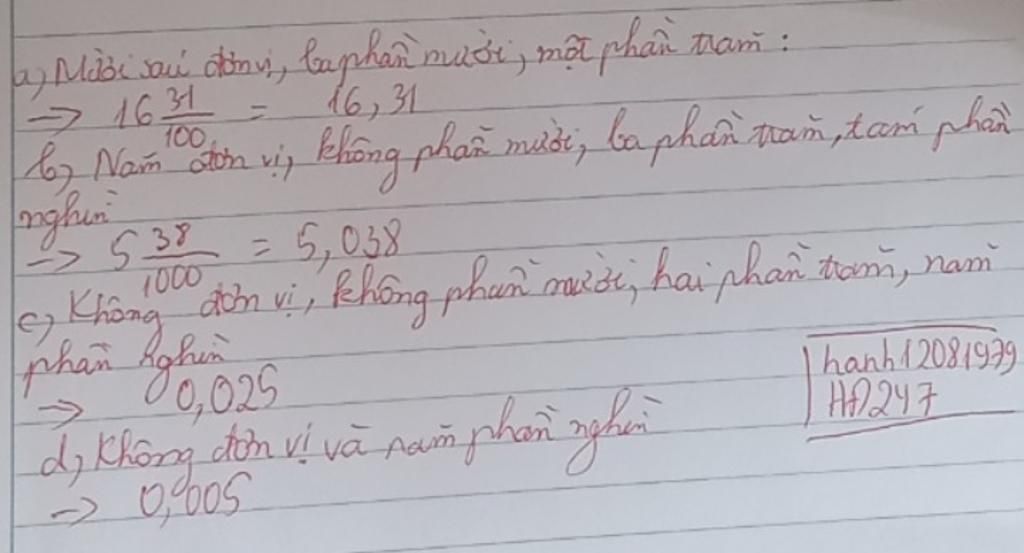 a, Mười sáu đơn vị, ba phần mười, một phần trăm :
→ 16 31/100 = 16,31
b, Năm đơn vị, không phần mười, ba phần trăm, tám phần
nghìn
→ 5 38/1000 = 5,038
c, Không đơn vị, không phần mười, hai phần trăm, năm
phần nghìn
→ 0,025
hanh12081979
HĐ247
d, Không đơn vị và năm phần nghìn
→ 0,005